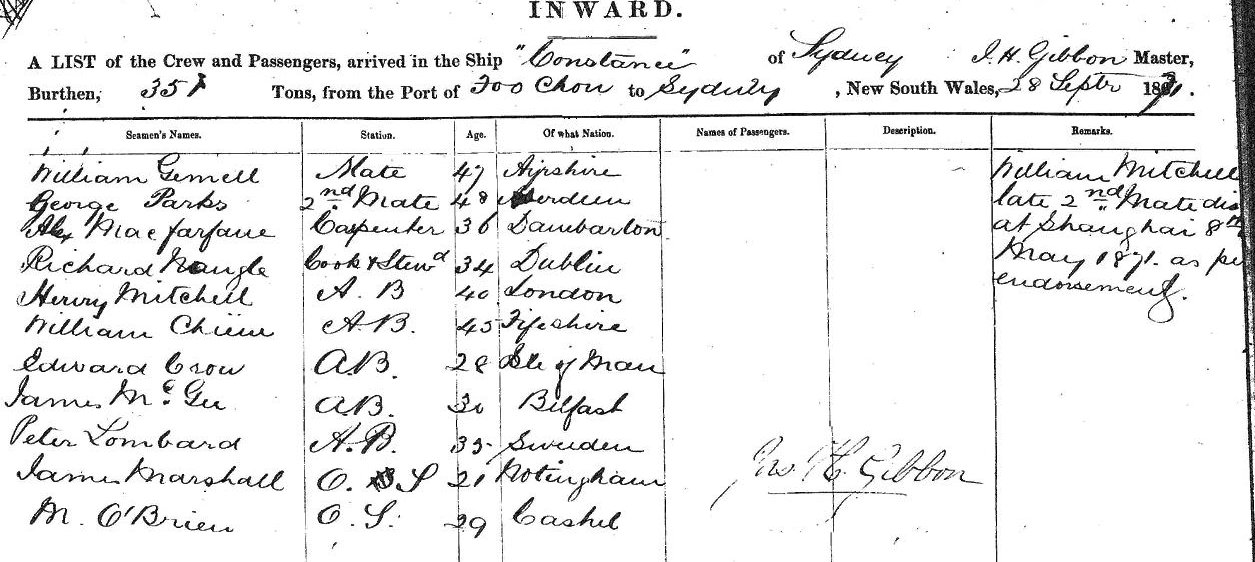 INWARD.
A LIST of the Crew and Passengers, arrived in the Ship "Constance" of Sydney J. H. Gibbon Master,
Burthen, 351 Tons, from the Port of Foo Chow to Sydney, New South Wales, 28 Septr 1871.
Seamen's Names. Station. Age. Of what Nation. Names of Passengers. Description. Remarks.
William Gemell Mate 47 Ayrshire William Mitchell
George Parks 2nd Mate 48 Aberdeen late 2nd Mate dis
Alex Macfarlane Carpenter 36 Dumbarton at Shanghai 8th
Richard Nangle Cook & Stewd 34 Dublin May 1871. as per
Henry Mitchell A. B 40 London endorsement.
William A.B. 45 Fifeshire
Edward Crow A.B. 28 Isle of Man
James McGee A.B. 30 Belfast
Peter Lombard A.B. 35 Sweden
James Marshall O. S 21 Notingham
Jno. H. Gibbon
M. O'Brien O.S. 29 Cashel